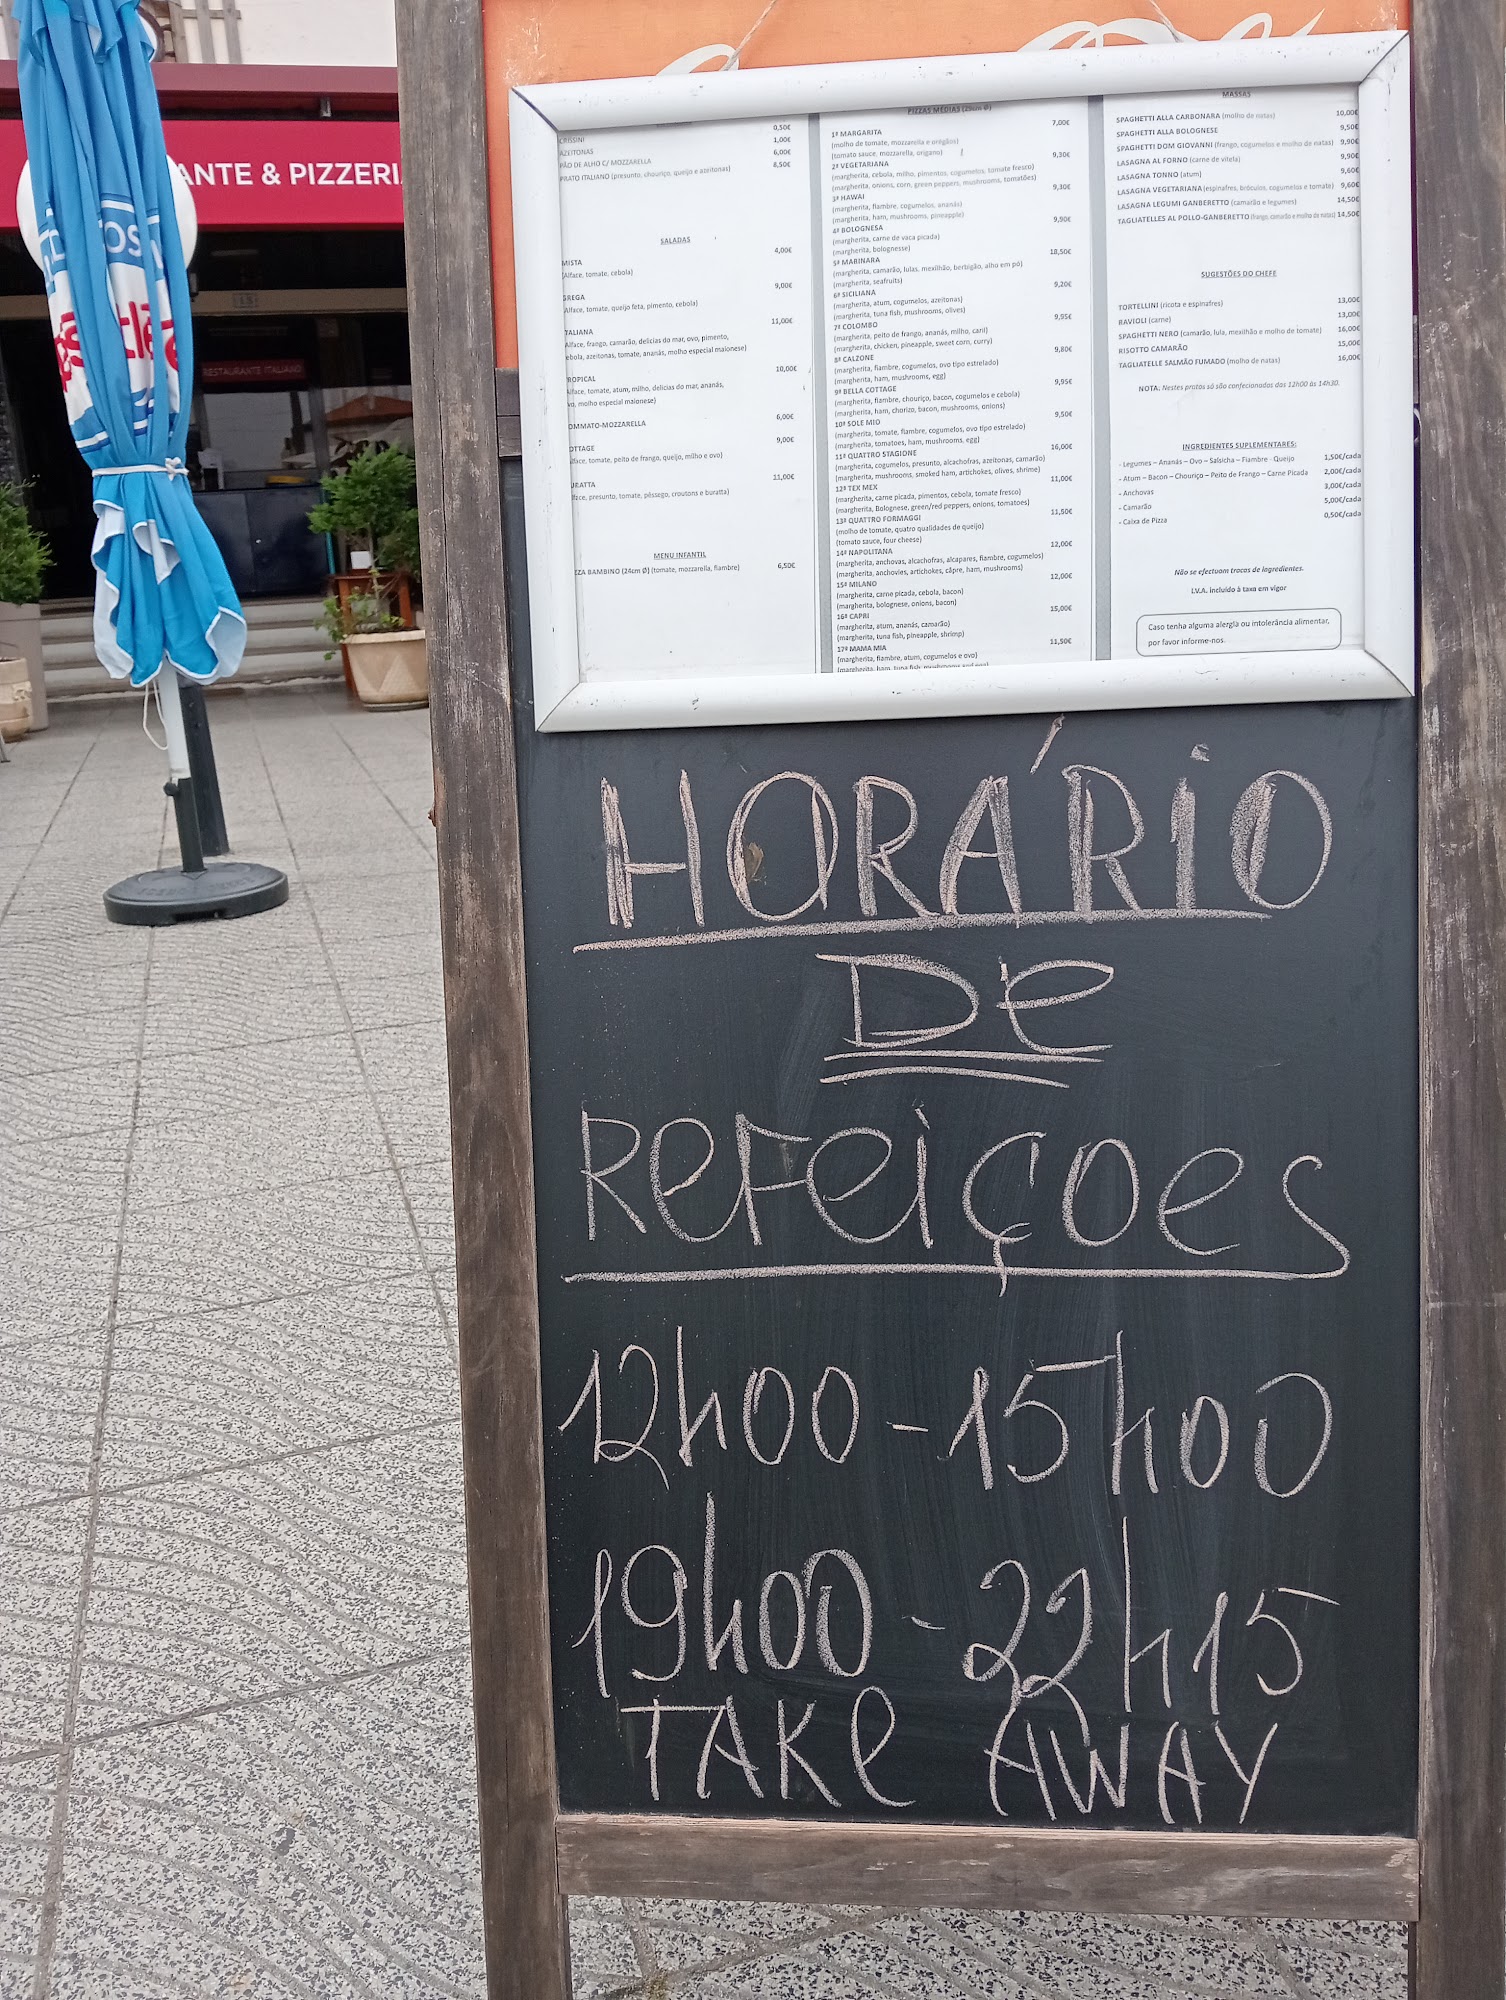 ANTE & PIZZERI
RESTAURANTE ITALIANO
13
0,50€
1,00€
AZEITONAS 6,00€
PÃO DE ALHO C/ MOZZARELLA 8,50€
PRATO ITALIANO (presunto, chouriço, queijo e azeitonas)
SALADAS
MISTA 4,00€
(Alface, tomate, cebola)
GREGA 9,00€
alface, tomate, queijo feta, pimento, cebola)
TALIANA 11,00€
alface, frango, camarão, delicias do mar, ovo, pimento,
ebola, azeitonas, tomate, ananás, molho especial maionese)
ROPICAL 10,00€
alface, tomate, atum, milho, delicias do mar, ananás,
vo, molho especial maionese)
OMMATO-MOZZARELLA 6,00€
OTTAGE 9,00€
lface, tomate, peito de frango, queijo, milho e ovo)
URATTA 11,00€
lface, presunto, tomate, pêssego, croutons e buratta)
MENU INFANTIL
ZZA BAMBINO (24cm Ø) (tomate, mozzarella, fiambre) 6,50€
PIZZAS MÉDIAS (29cm Ø)
1ª MARGARITA 7,00€
(molho de tomate, mozzarella e oregãos)
(tomato sauce, mozzarella, origano)
2ª VEGETARIANA 9,30€
(margherita, cebola, milho, pimentos, cogumelos, tomate fresco)
(margherita, onions, corn, green peppers, mushrooms, tomatões)
3ª HAWAI 9,30€
(margherita, fiambre, cogumelos, ananás)
(margherita, ham, mushrooms, pineapple)
4ª BOLOGNESA 9,90€
(margherita, carne de vaca picada)
(margherita, bolognesse)
5ª MARINARA 18,50€
(margherita, camarão, lulas, mexilhão, berbigão, alho em pó)
(margherita, seafruits)
6ª SICILIANA 9,20€
(margherita, atum, cogumelos, azeitonas)
(margherita, tuna fish, mushrooms, olives)
7ª COLOMBO 9,95€
(margherita, peito de frango, ananás, milho, caril)
(margherita, chicken, pineapple, sweet corn, curry)
8ª CALZONE 9,80€
(margherita, fiambre, cogumelos, ovo tipo estrelado)
(margherita, ham, mushrooms, egg)
9ª BELLA COTTAGE 9,95€
(margherita, fiambre, chouriço, bacon, cogumelos e cebola)
(margherita, ham, chorizo, bacon, mushrooms, onions)
10ª SOLE MIO 9,50€
(margherita, tomate, fiambre, cogumelos, ovo tipo estrelado)
(margherita, tomatoes, ham, mushrooms, egg)
11ª QUATTRO STAGIONE 16,00€
(margherita, cogumelos, presunto, alcachofras, azeitonas, camarão)
(margherita, mushrooms, smoked ham, artichokes, olives, shrime)
12ª TEX MEX 11,00€
(margherita, carne picada, pimentos, cebola, tomate fresco)
(margherita, Bolognese, green/red peppers, onions, tomatoes)
13ª QUATTRO FORMAGGI 11,50€
(molho de tomate, quatro qualidades de queijo)
(tomato sauce, four cheese)
14ª NAPOLITANA 12,00€
(margherita, anchovas, alcachofras, alcapares, fiambre, cogumelos)
(margherita, anchovies, artichokes, câpre, ham, mushrooms)
15ª MILANO 12,00€
(margherita, carne picada, cebola, bacon)
(margherita, bolognese, onions, bacon)
16ª CAPRI 15,00€
(margherita, atum, ananás, camarão)
(margherita, tuna fish, pineapple, shrimp)
17ª MAMA MIA 11,50€
(margherita, fiambre, atum, cogumelos e ovo)
(margherita, ham, tuna fish, mushrooms and egg)
MASSAS
SPAGHETTI ALLA CARBONARA (molho de natas) 10,00€
SPAGHETTI ALLA BOLOGNESE 9,50€
SPAGHETTI DOM GIOVANNI (frango, cogumelos e molho de natas) 9,90€
LASAGNA AL FORNO (carne de vitela) 9,90€
LASAGNA TONNO (atum) 9,60€
LASAGNA VEGETARIANA (espinafres, bróculos, cogumelos e tomate) 9,60€
LASAGNA LEGUMI GANBERETTO (camarão e legumes) 14,50€
TAGLIATELLES AL POLLO-GANBERETTO (frango, camarão e molho de natas) 14,50€
SUGESTÕES DO CHEFE
TORTELLINI (ricota e espinafres) 13,00€
RAVIOLI (carne) 13,00€
SPAGHETTI NERO (camarão, lula, mexilhão e molho de tomate) 16,00€
RISOTTO CAMARÃO 15,00€
TAGLIATELLE SALMÃO FUMADO (molho de natas) 16,00€
NOTA: Nestes pratos só são confecionados das 12h00 às 14h30.
INGREDIENTES SUPLEMENTARES:
- Legumes – Ananás – Ovo – Salsicha – Fiambre - Queijo 1,50€/cada
- Atum – Bacon – Chouriço – Peito de Frango – Carne Picada 2,00€/cada
- Anchovas 3,00€/cada
- Camarão 5,00€/cada
- Caixa de Pizza 0,50€/cada
Não se efectuam trocas de ingredientes.
I.V.A. incluído à taxa em vigor
Caso tenha alguma alergia ou intolerância alimentar,
por favor informe-nos.
HORÁRIO
DE
REFEIÇOES
12h00 - 15h00
19h00 - 22h15
TAKE AWAY